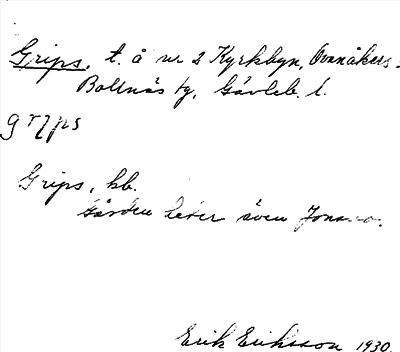 Grips, t. å nr 2 Kyrkbyn, Ovanåkers
Bollnäs tg, Gävleb. l.
Grips, kb.
Gården heter även
Erik Eriksson 1930.